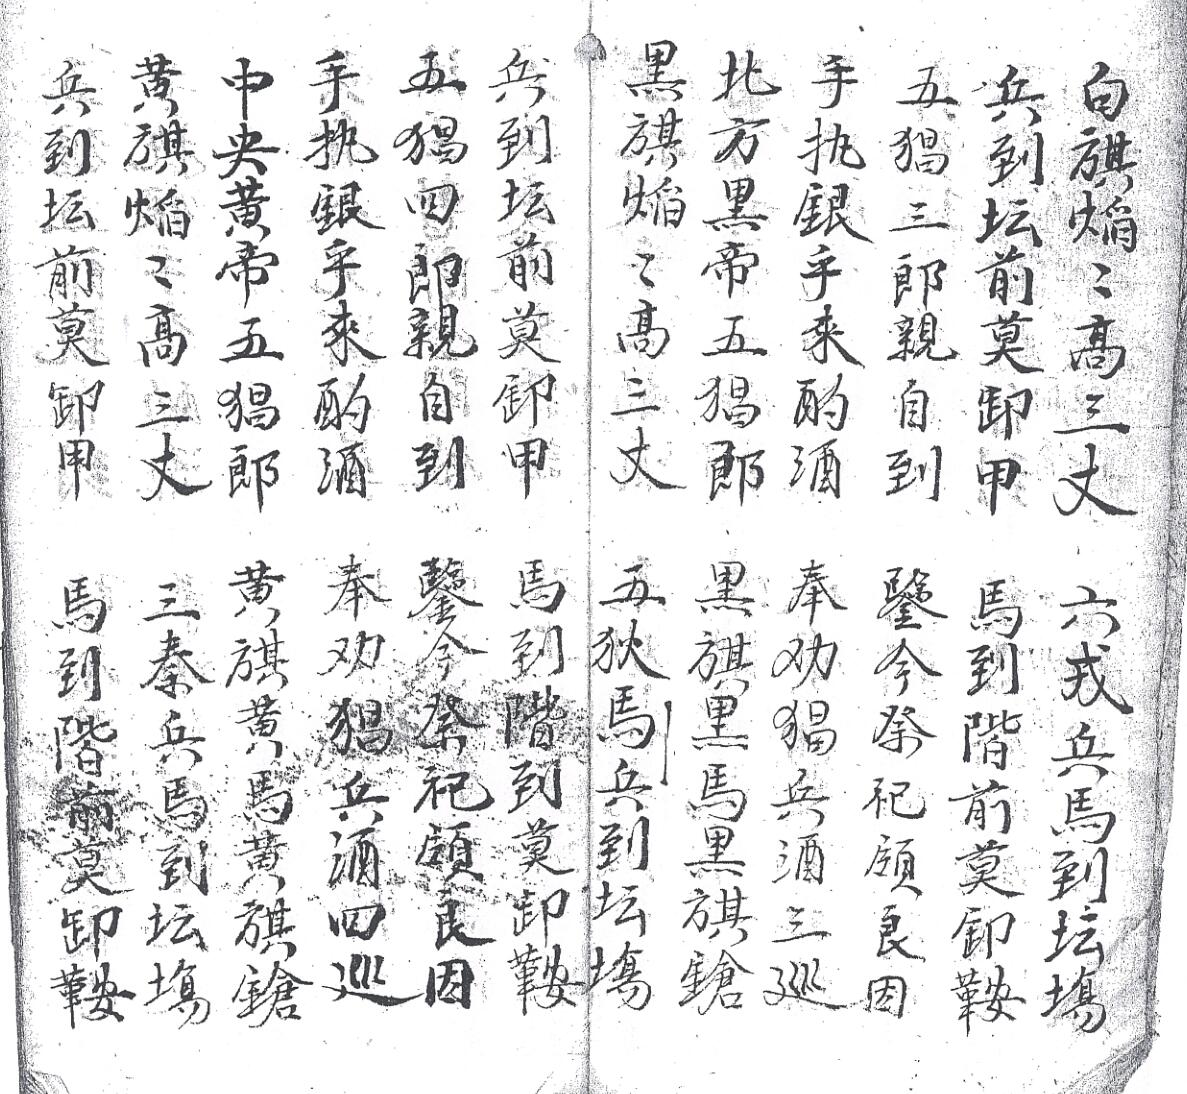 白旗焰〻高三丈　六戎兵馬到坛塲
兵到坛前莫卸甲　馬到階前莫卸鞍
五猖三郎親自到　鑒今祭祀願良因
手执銀乎来酌酒　奉劝猖兵酒三巡
北方黒帝五猖郎　黒旗黒馬黒旗鎗
黒旗焰〻高三丈　五狄馬兵到坛塲
兵到坛前莫卸甲　馬到階到莫卸鞍
五猖四郎親自到　鑒今祭祀願良因
手执銀乎來酌酒　奉劝猖兵酒四巡
中央黄帝五猖郎　黄旗黄馬黄旗鎗
黄旗焰〻高三丈　三秦兵馬到坛塲
兵到坛前莫卸甲　馬到階前莫卸鞍